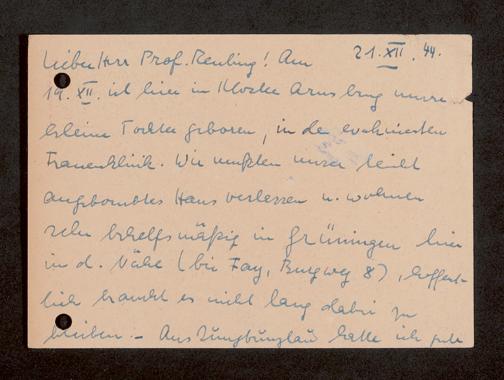 Lieber Herr Prof. Reuling! Am 21. XII. 44.
19. XII. ist hier in Kloster Arnsburg unsere
kleine Tochter geboren, in der evakuierten
Frauenklinik. Wir mußten unser leicht
angebombtes Haus verlassen u. wohnen
sehr behelfsmäßig in Grüningen hier
in d. Nähe (bei Fay, Burgweg 8), hoffent-
lich braucht es nicht lang dabei zu
bleiben. - Aus Jungbunzlau hatte ich gute